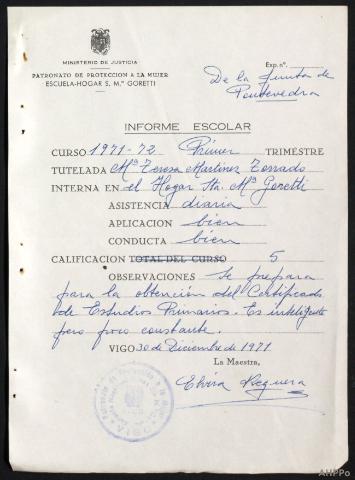 MINISTERIO DE JUSTICIA
PATRONATO DE PROTECCION A LA MUJER
ESCUELA-HOGAR S. M.ª GORETTI
Exp. nº.
De la Junta de
Pontevedra
INFORME ESCOLAR
CURSO 1971-72 Primer TRIMESTRE
TUTELADA Mª Teresa Martinez Torrado
INTERNA EN el Hogar Sta. Mª Goretti
ASISTENCIA diaria
APLICACION bien
CONDUCTA bien
CALIFICACION TOTAL DEL CURSO 5
OBSERVACIONES Se prepara
para la obtención del Certificado
de Estudios Primarios. Es inteligente
pero poco constante.
VIGO 30 de Diciembre de 1971
La Maestra,
Elvira
AHPPo